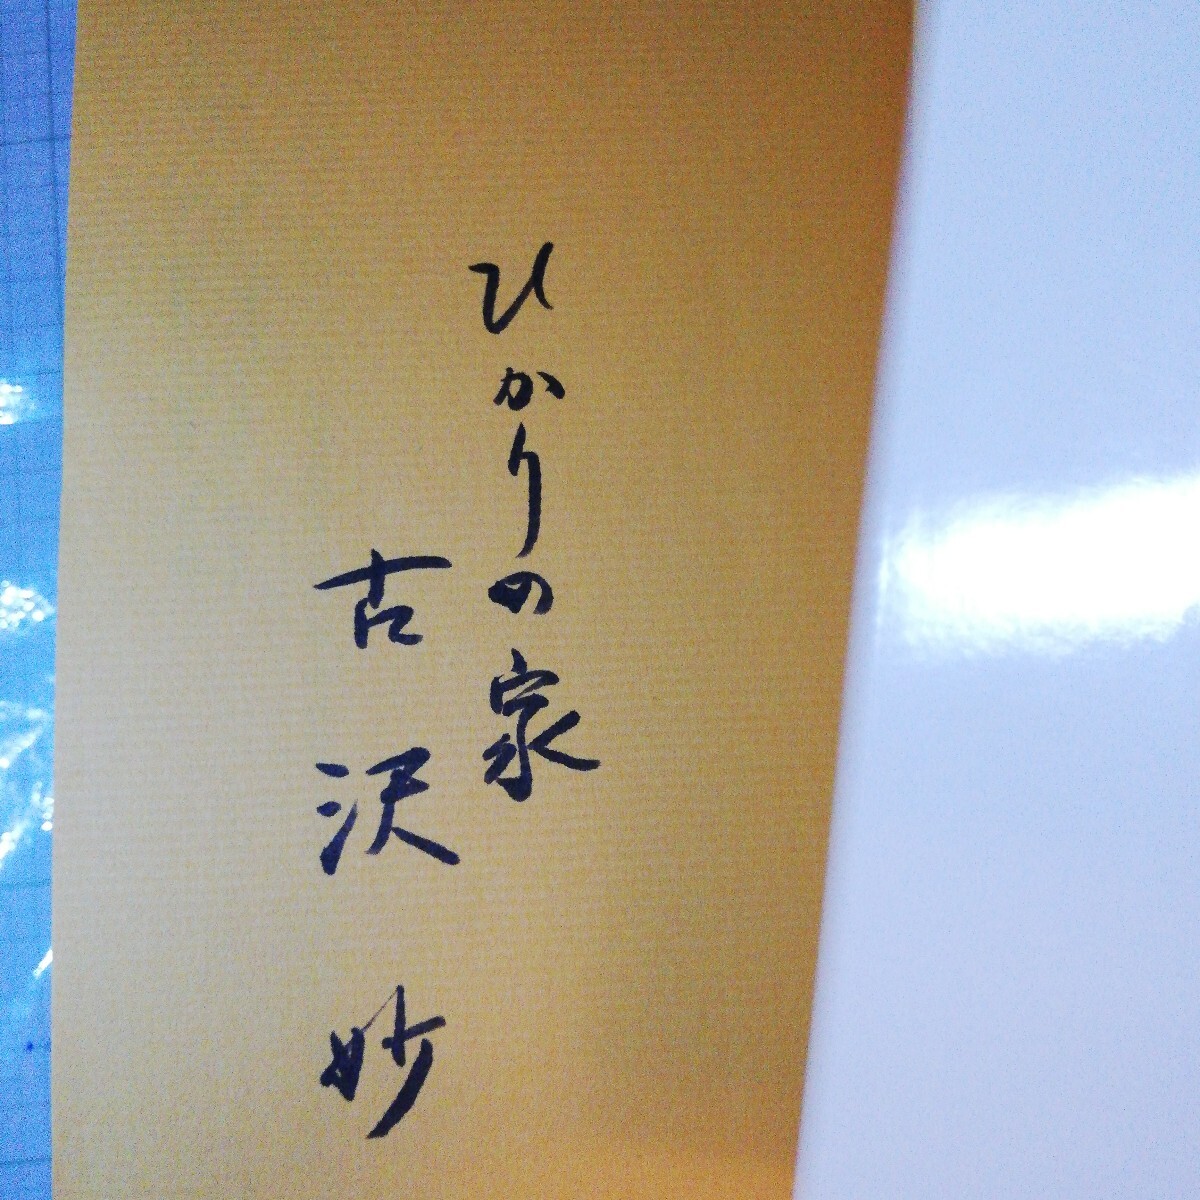 ひかりの家
古沢 妙